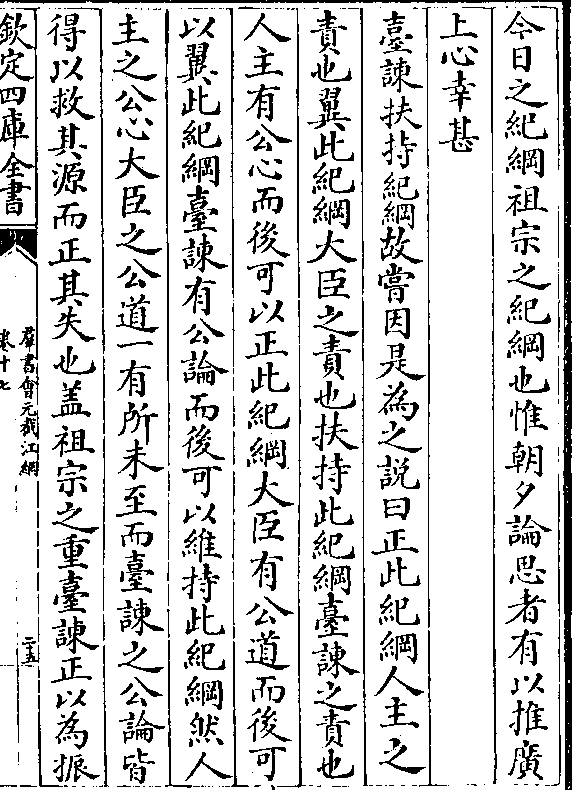 今日之紀綱祖宗之紀綱也惟朝夕論思者有以推廣
上心幸甚
臺諫扶持紀綱故嘗因是為之說曰正此紀綱人主之
責也翼此紀綱大臣之責也扶持此紀綱臺諫之責也
人主有公心而後可以正此紀綱大臣有公道而後可
以翼此紀綱臺諫有公論而後可以維持此紀綱然人
主之公心大臣之公道一有所未至而臺諫之公論皆
得以救其源而正其失也蓋祖宗之重臺諫正以為振
欽定四庫全書
羣書會元截江網
卷十七
二五